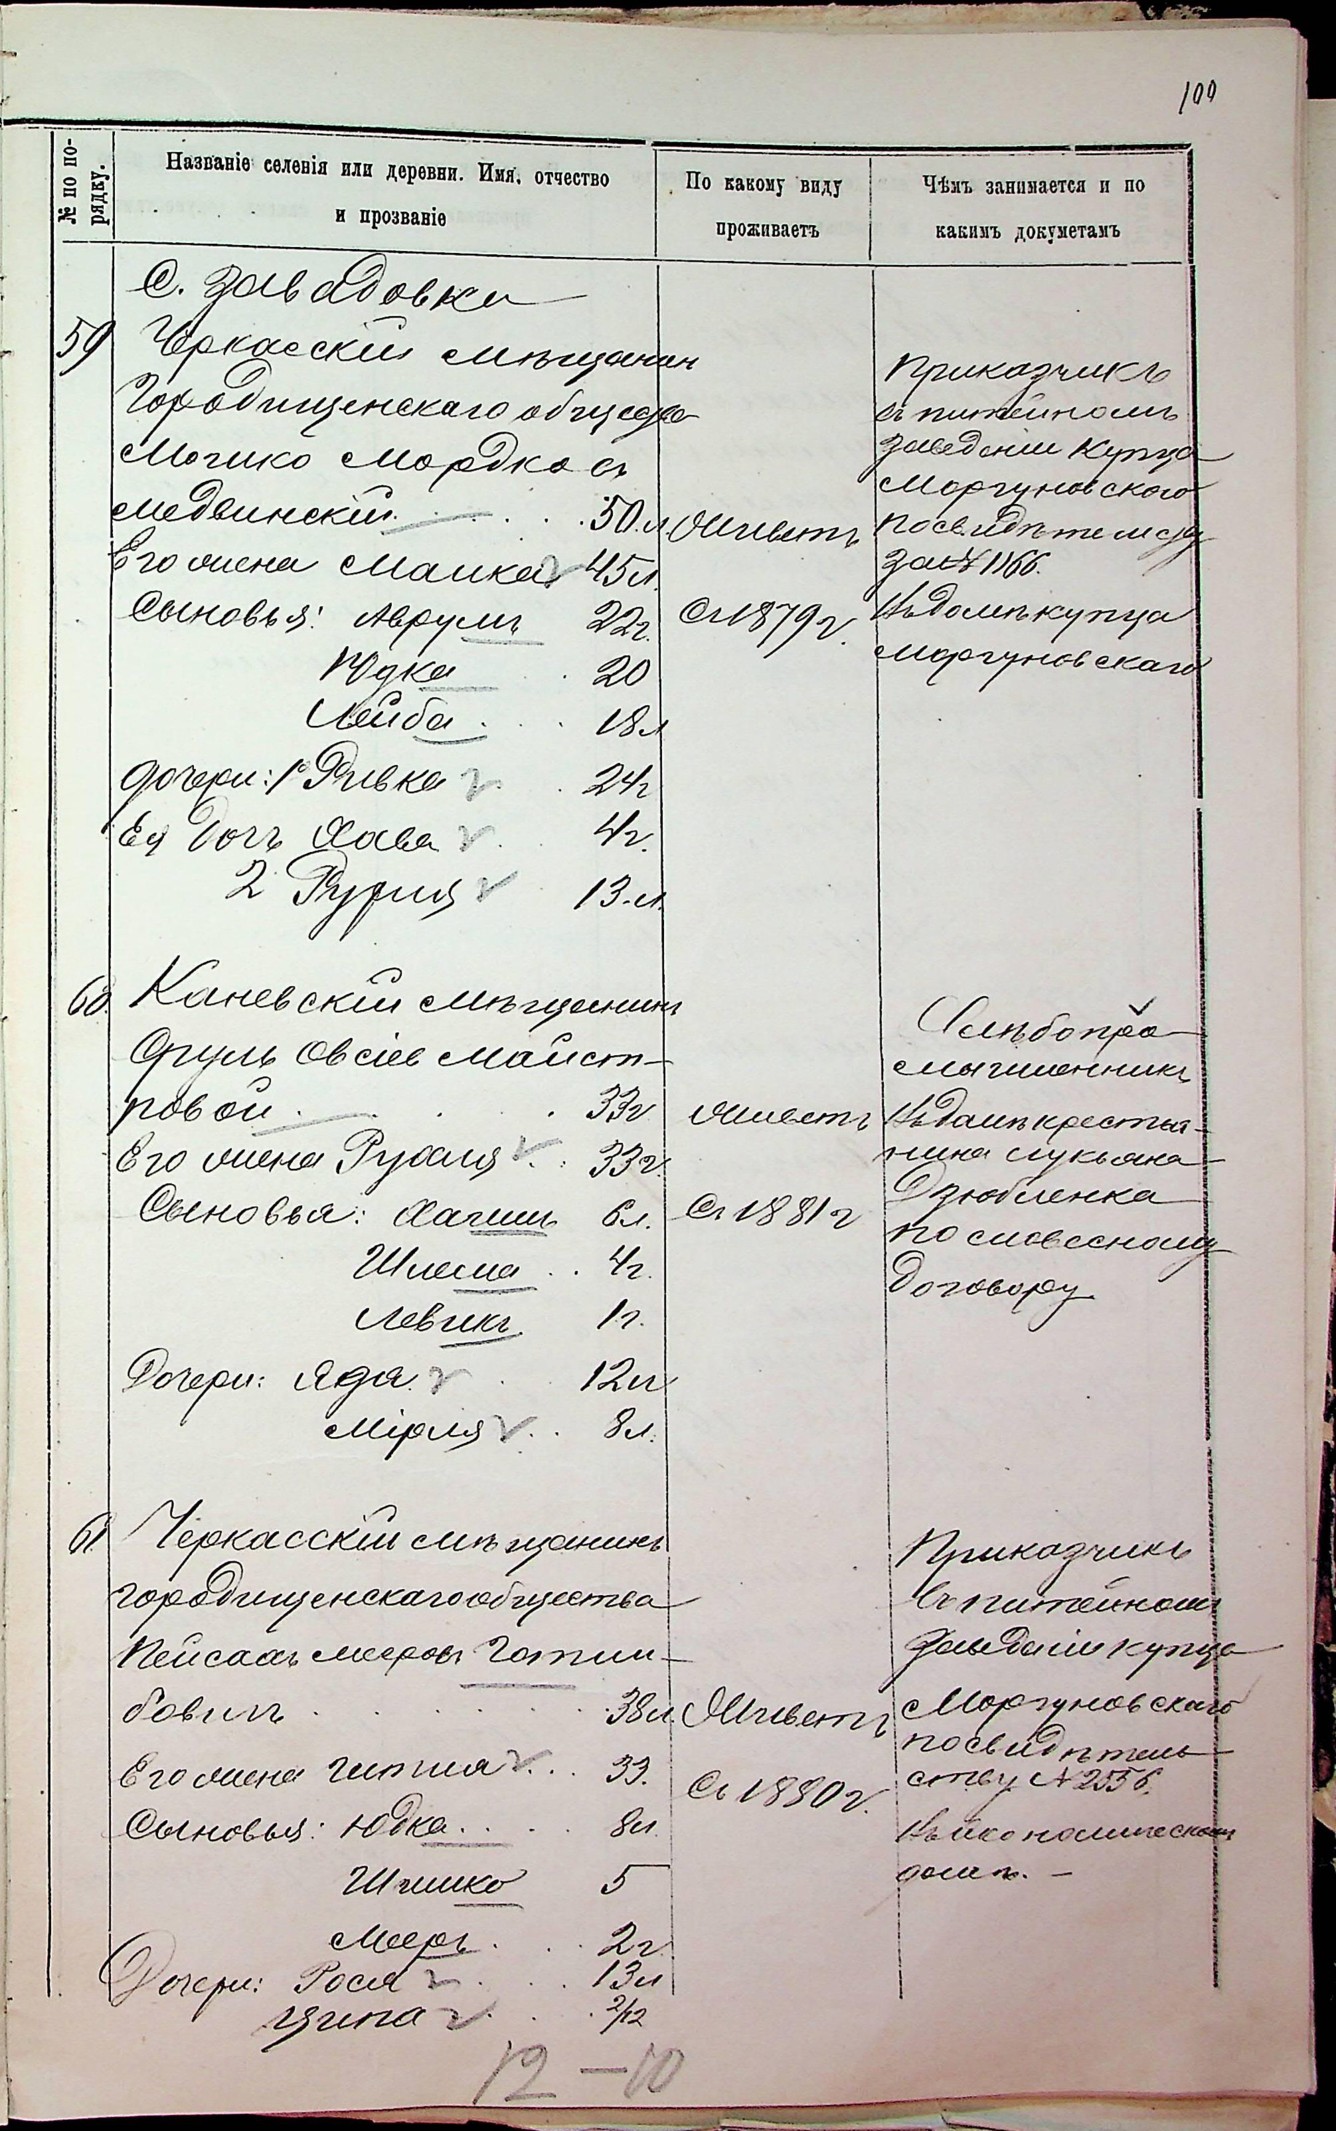 100
№ по по-
рядку.
Названіе селенія или деревни. Имя, отчество
и прозваніе
По какому виду
проживаетъ
Чѣмъ занимается и по
какимъ докуметамъ
С. Завадовка
59 Черкасскій мѣщанин
Городищенскаго общества
Мошко Мордковъ
Медвинскій 50 л
Его жена Малка 45 л
Сыновья: Аврумъ 22 г.
Юдка 20
Лейба 18 л
Дочери: 1 Ривка 24 г
Ея дочь Хава 4 г.
2 Рухля 13 л.
Живетъ
Съ 1879 г.
Приказчикъ
въ питейномъ
заведеніи купца
Моргуновского
по свидѣтельству
за № 1166.
Въ домѣ купца
Моргуновскаго
60. Каневскій мѣщанинъ
Сруль Овсіев Майст-
ровой 33 г
Его жена Рухля 33 г.
Сыновья: Хаимъ 6 л.
Шлема 4 г.
Левикъ 1 г.
Дочери: Яда 12 л
Мірля 8 л.
Живетъ
Съ 1881 г
Хлѣбопро-
мышленникъ
Въ домѣ крестья-
нина Лукьяна
Дзюбленка
по словесному
договору
61 Черкасскій мѣщанинъ
городищенскаго общества
Пейсахъ Мееровъ Готли-
бовичъ 38 л.
Его жена Гитля 33.
Сыновья: Юдка 8 л
Шмилко 5
Мееръ 2 г.
Дочери: Рося 13 л
Ципа 2/12
Живетъ
Съ 1880 г.
Приказчикъ
въ питейномъ
заведеніи купца
Моргуновскаго
по свидѣтель-
ству № 2556.
Въ икономическомъ
домѣ. —
12 — 10